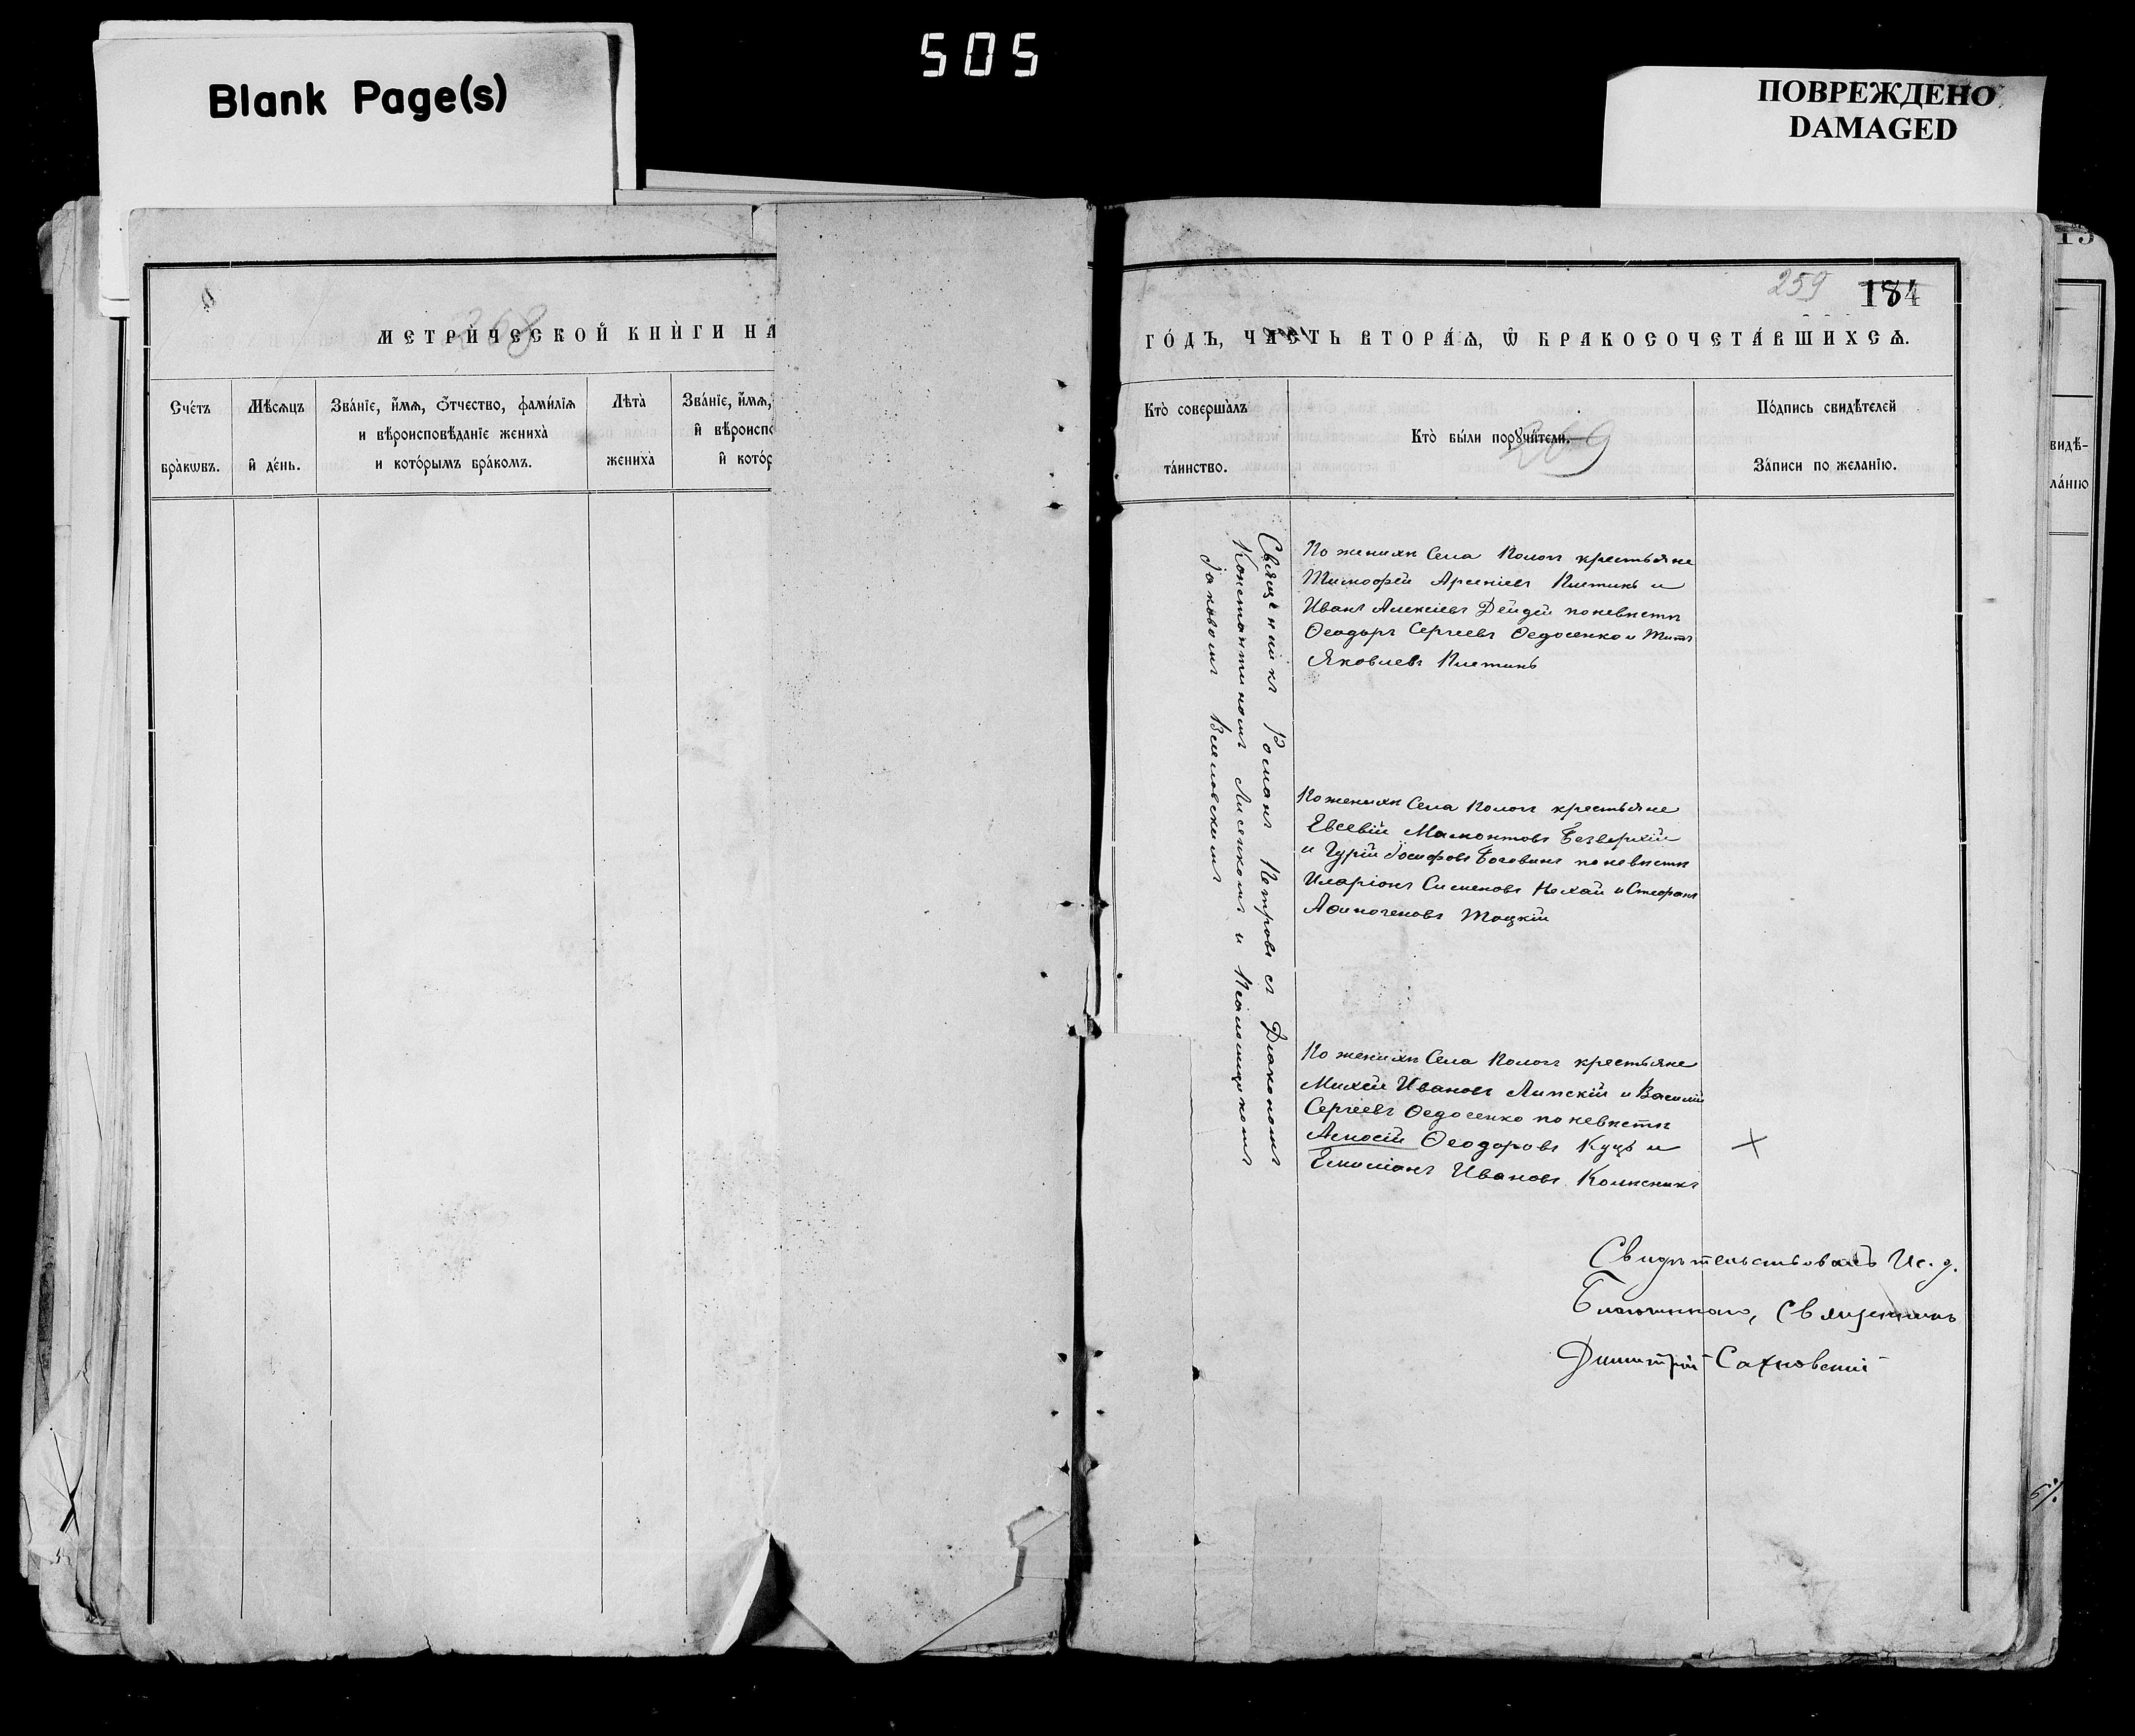 505
Blank Page(s)
ПОВРЕЖДЕНО
DAMAGED
МЕТРИ́ЧЕСКОЙ КНИ́ГИ НА
Сче́тъ
бра́кѡвъ.
Мѣ́сѧцъ
и҆ де́нь.
Зва́нїе, и҆́мѧ, ѻ҆́тчество, фами́лїѧ
и вѣроисповѣ́данїе жениха̀
и кото́рымъ бра́комъ.
Лѣта̀
жениха̀
Зва́нїе, и҆́мѧ,
и҆ вѣроиспо
и҆ кото́р
259
184
ГО́ДЪ, ЧА́СТЬ ВТОРА́Ѧ, Ѽ БРАКОСОЧЕТА́ВШИХСѦ.
Кто̀ соверша́лъ
та́инство.
Кто̀ бы́ли порꙋчи́тели.
269
По́дпись свидѣ́телей
За́писи по жела́нїю.
видѣ-
ла́нїю
Священникъ Романъ Петровъ съ Діакономъ
Константиномъ Лисенкомъ и Псаломщикомъ
Іаковомъ
По женихѣ Села Пологъ крестьяне
Тимофей Арсеніевъ Плетинь и
Иванъ Алексіевъ Дейдей по невѣстѣ
Ѳеодоръ Сергеевъ Ѳедосенко и Титъ
Яковлевъ Плетинь
По женихѣ Села Пологъ крестьяне
Евсевій Мамонтовъ Безверхій
и Гурій Іосифовъ по невѣстѣ
Иларіонъ Сименовъ Нехай и Стефанъ
Аѳиногеновъ Тоцкій
По женихѣ Села Пологъ крестьяне
Михей Ивановъ Липскій и Василій
Сергеевъ Ѳедосенко по невѣстѣ
Ѳеодоровъ Куцъ и
Емиліанъ Ивановъ Колесникъ
Свидѣтельствовалъ Ис. д.
Благочиннаго, Священникъ
Димитрій Сахновскій